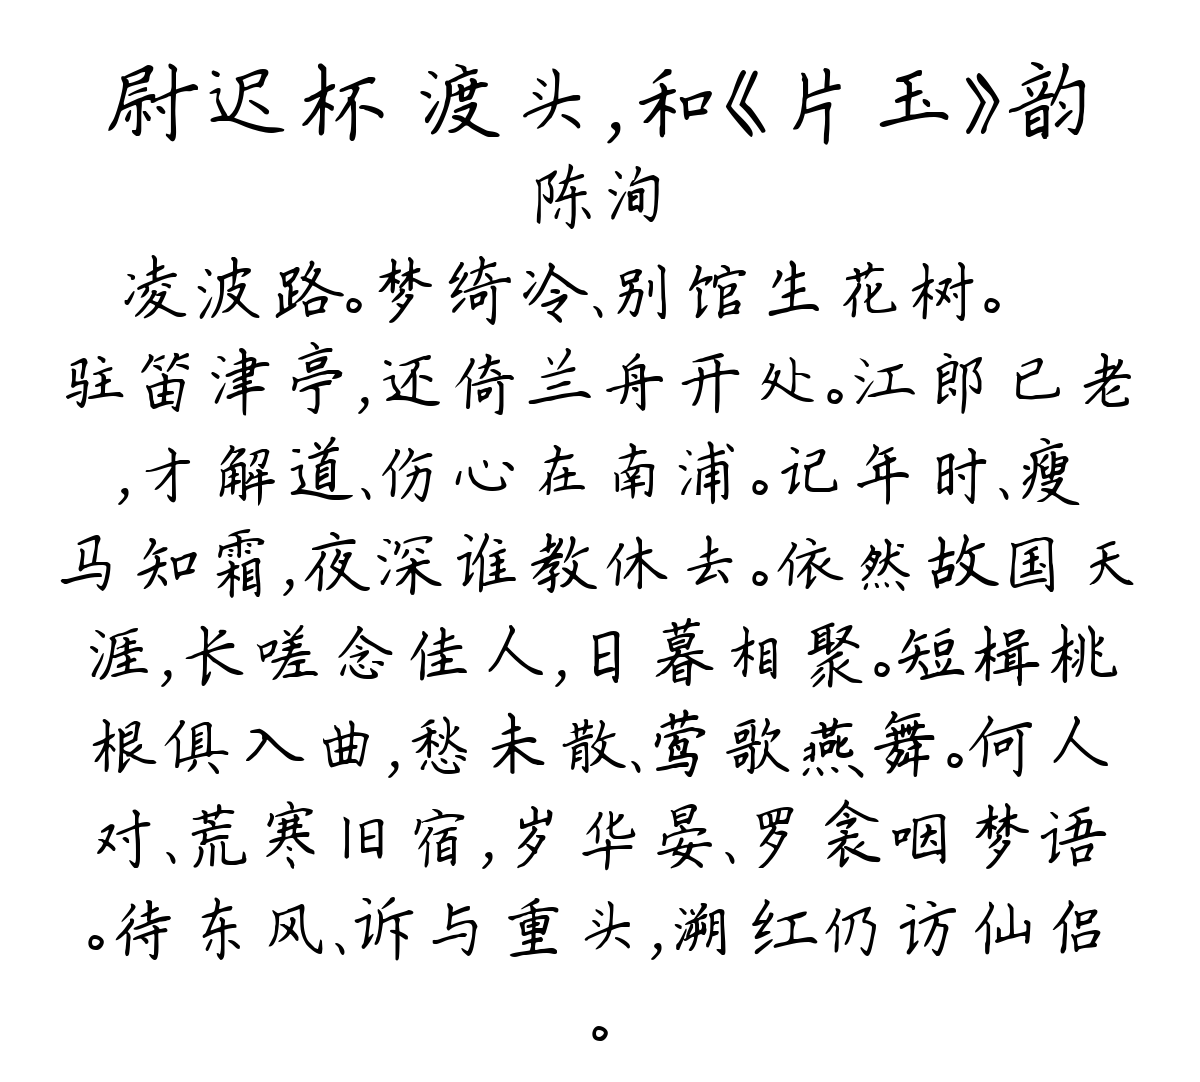 尉迟杯 渡头,和《片玉》韵
陈洵
凌波路。梦绮冷、别馆生花树。
驻笛津亭,还倚兰舟开处。江郎已老
,才解道、伤心在南浦。记年时、瘦
马知霜,夜深谁教休去。依然故国天
涯,长嗟念佳人,日暮相聚。短楫桃
根俱入曲,愁未散、莺歌燕舞。何人
对、荒寒旧宿,岁华晏、罗衾咽梦语
。待东风、诉与重头,溯红仍访仙侣
。